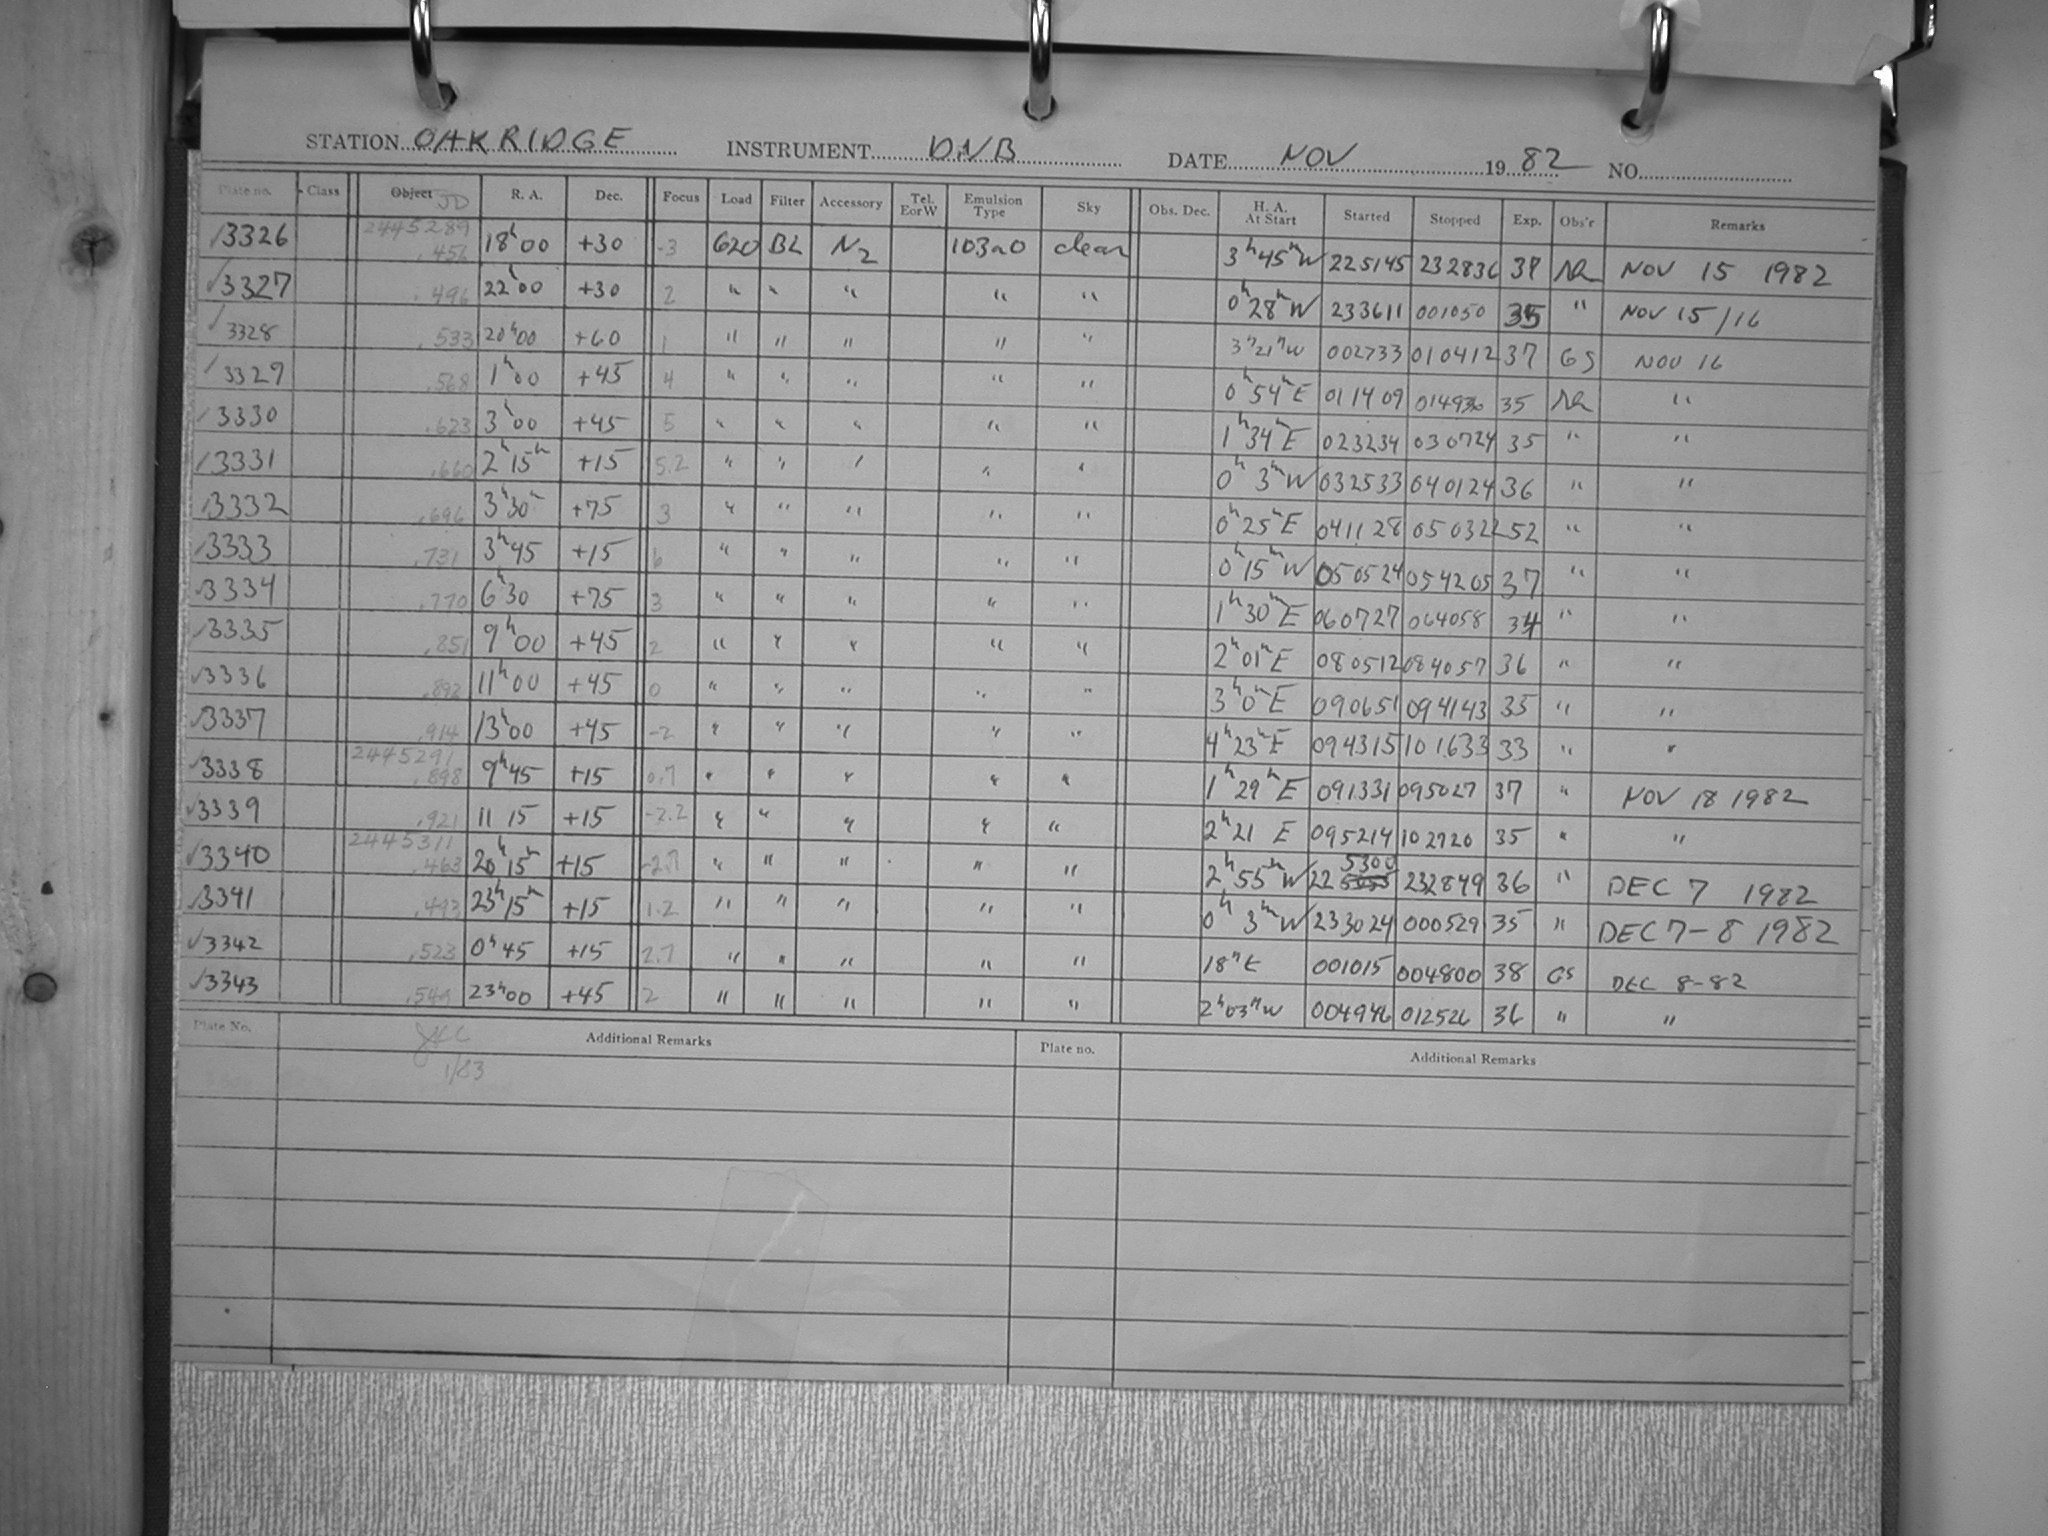 STATION OAK RIDGE INSTRUMENT DNB DATE NOV 19 82 NO.
Plate no. Class Object JD R. A. Dec. Focus Load Filter Accessory Tel. E or W Emulsion Type Sky Obs. Dec. H. A. At Start Started Stopped Exp. Obs'r Remarks
✓3326 2445289 .456 18h00 +30 -3 620 BL N2 103a0 clear 3h45mW 225145 232836 37 NOV 15 1982
✓3327 .496 22h00 +30 2 " " " " " 0h28mW 233611 001050 35 " NOV 15/16
✓3328 .533 20h00 +60 1 " " " " " 3h21mW 002733 010412 37 GS NOV 16
✓3329 .568 1h00 +45 4 " " " " " 0h54mE 011409 35 "
✓3330 .623 3h00 +45 5 " " " " " 1h34mE 023234 030724 35 " "
✓3331 .660 2h15m +15 5.2 " " " " " 0h 3mW 032533 040124 36 " "
✓3332 .696 3h30m +75 3 " " " " " 0h25mE 041128 050322 52 " "
✓3333 .731 3h45 +15 6 " " " " " 0h15mW 050524 054205 37 " "
✓3334 .770 6h30 +75 3 " " " " " 1h30mE 060727 064058 34 " "
✓3335 .851 9h00 +45 2 " " " " " 2h01mE 080512 084057 36 " "
✓3336 .892 11h00 +45 0 " " " " " 3h0mE 090651 094143 35 " "
✓3337 .914 13h00 +45 -2 " " " " " 4h23mE 094315 101633 33 " "
✓3338 2445291 .898 9h45 +15 0.7 " " " " " 1h29mE 091331 095027 37 " NOV 18 1982
✓3339 .921 11 15 +15 -2.2 " " " " " 2h21 E 095214 102720 35 " "
✓3340 2445311 .463 20h15m +15 -2.7 " " " " " 2h55mW 225300 232849 36 " DEC 7 1982
✓3341 .493 23h15m +15 1.2 " " " " " 0h 3mW 233024 000529 35 " DEC 7-8 1982
✓3342 .523 0h45 +15 2.7 " " " " " 18mE 001015 004800 38 GS DEC 8-82
✓3343 23h00 +45 2 " " " " " 2h03mW 004946 012526 36 " "
Plate No. Additional Remarks Plate no. Additional Remarks
1/83